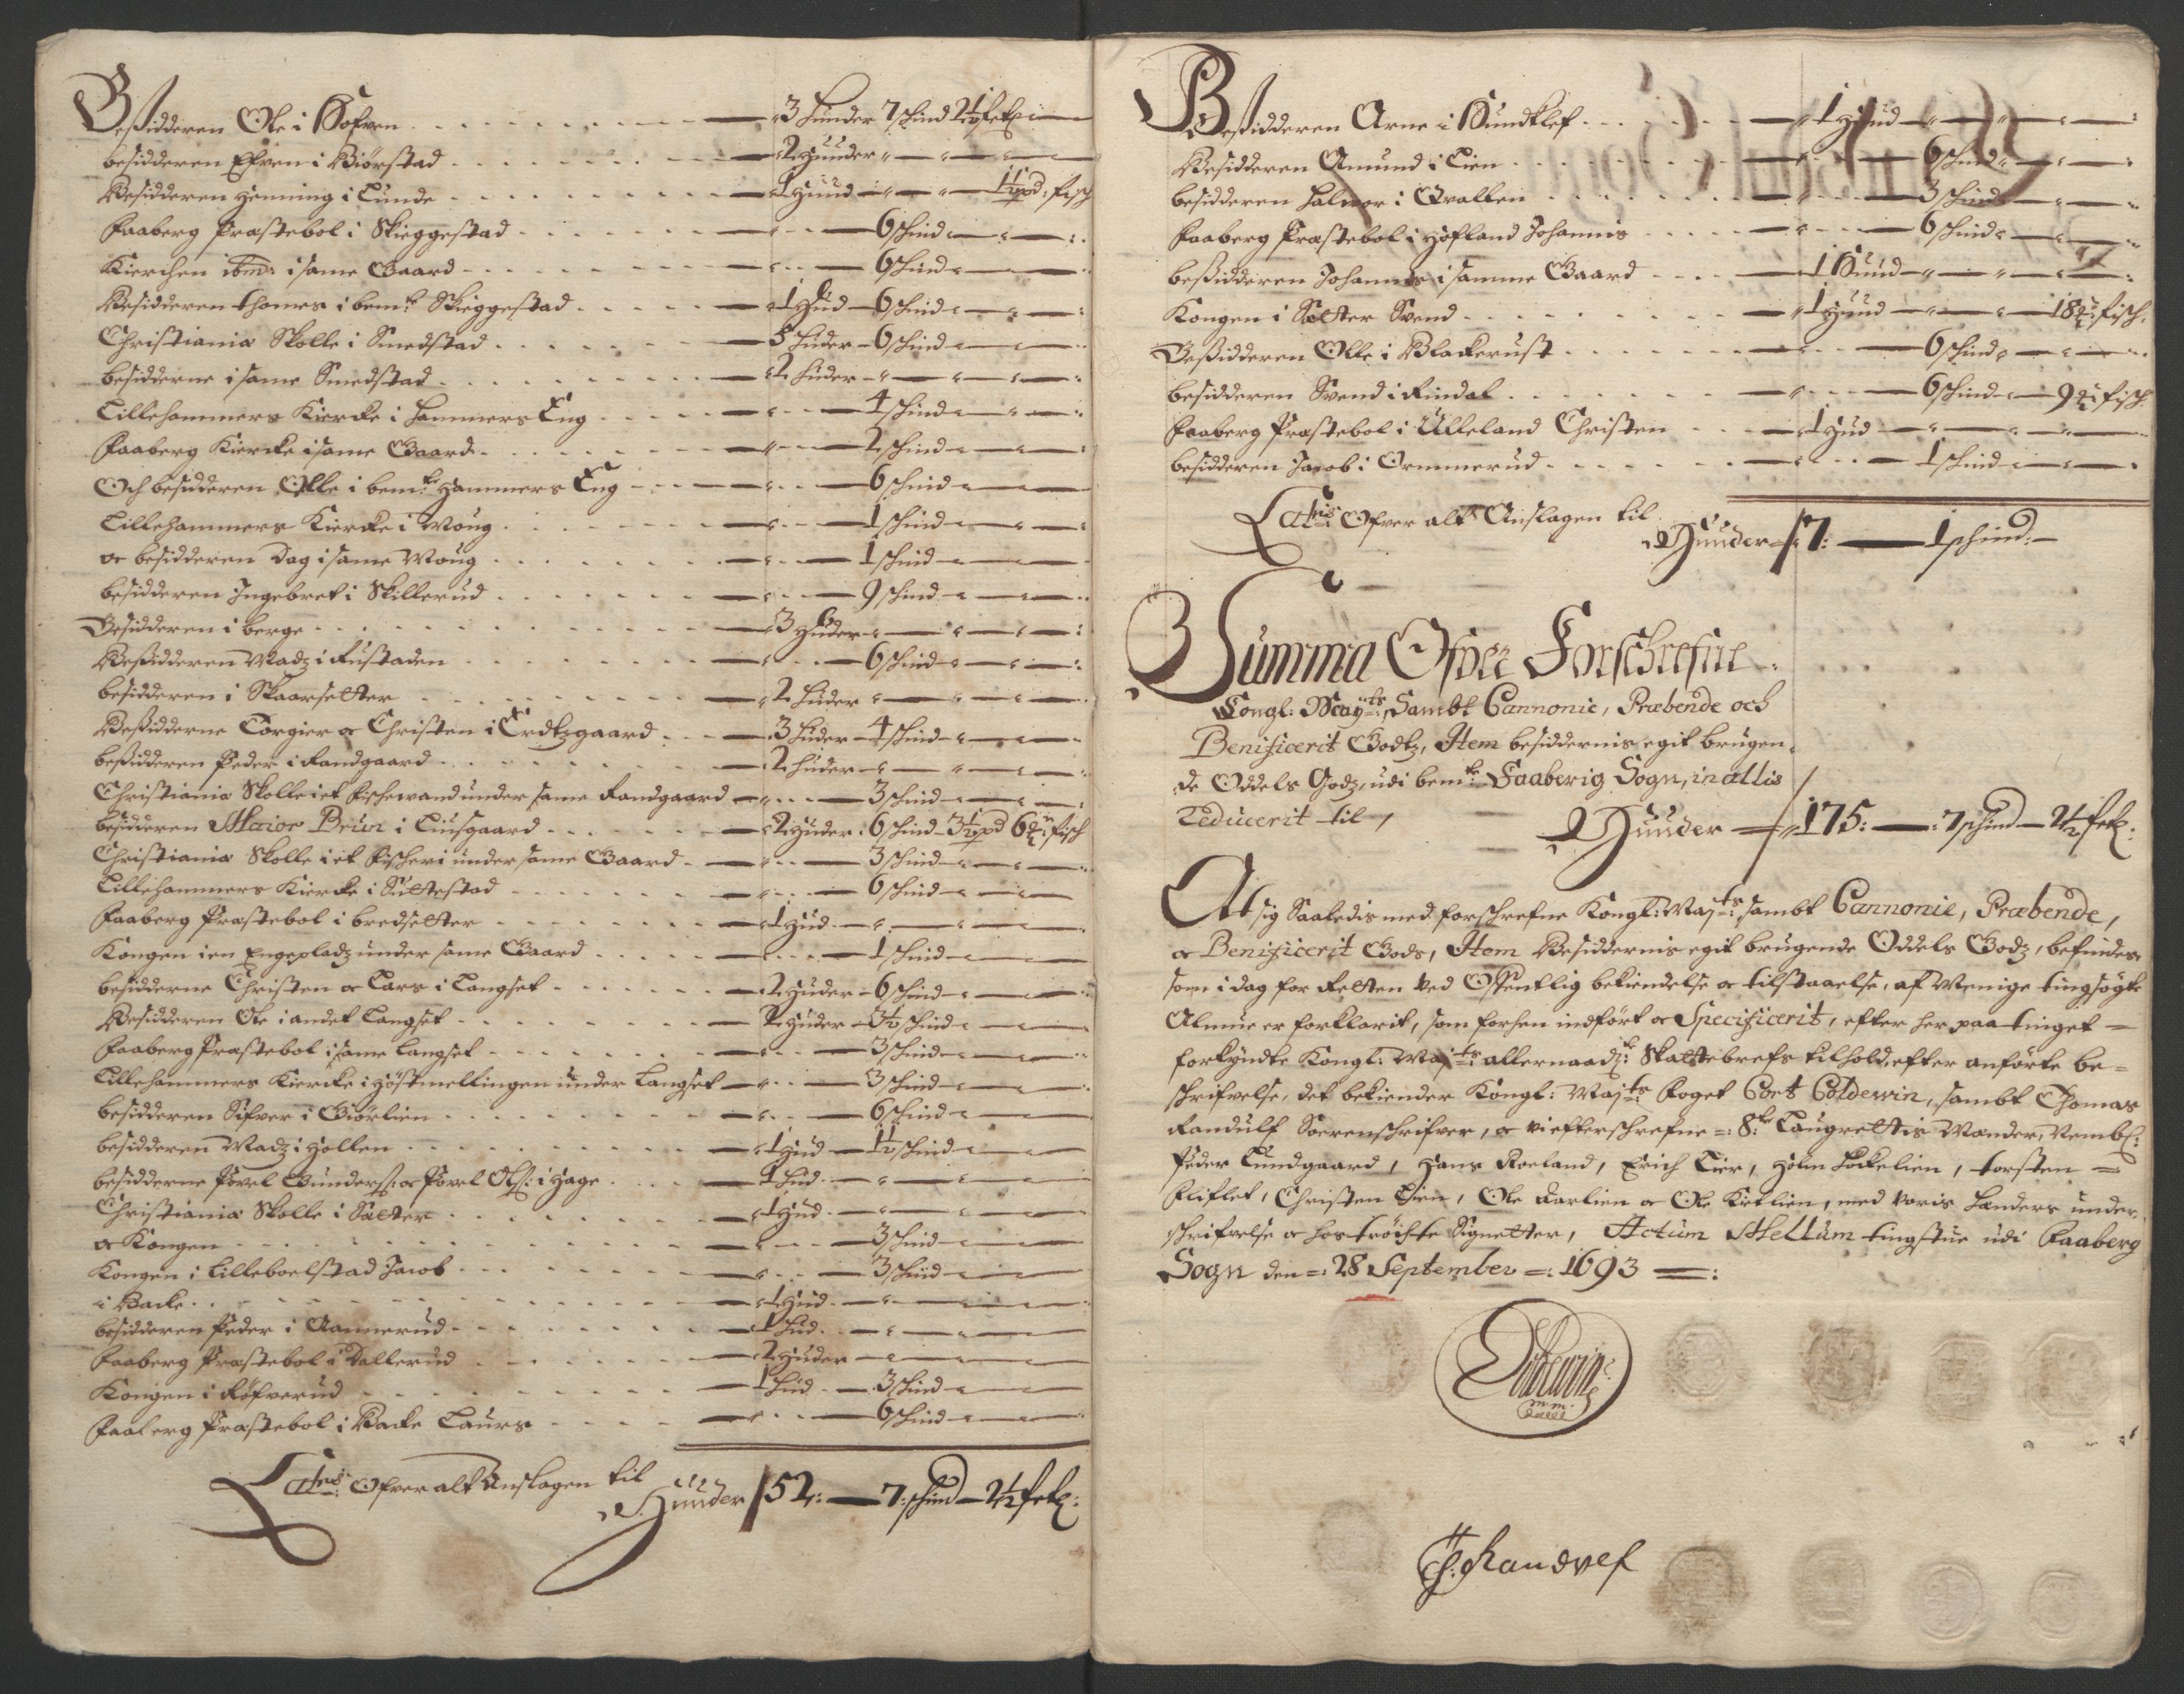 Beßidderen Ole i Hofven - 3 Huuder 7 schind 2½ setz:
besidderen Efven i Biörstad - 2 Huuder
Besidderen Henning i Lunde - 1 Huud - 1½ pd: fisch
Faaberg Præstebol i Skieggestad - 6 schind
Kierchen ibm: i same Gaard - 6 schind
Besidderen Thomes i bemte Skieggestad - 1 Hud - 6 schind
Christiania Skolle i Smedstad - 5 Huder - 6 schind
besidderne i same Smedstad - 2 Huder
Lillehammers Kiercke i Hammers Eng - 4 schind
Faaberg Kiercke i same Gaard - 2 schind
Och besidderen Olle i bemte Hammers Eng - 6 schind
Lillehammers Kiercke i Woug - 1 schind
oc besidderen Dag i same Woug - 1 schind
besidderen Ingebret i Skillerud - 9 schind
Besidderen i berge - 3 Huder
Beßidderen Madz i Rustaden - 6 schind
besidderen i Skaarsetter - 2 Huder
Beßidderne Torgier oc Christen i Erdtzgaard - 3 Huder - 4 schind
beßidderen Peder i Randgaard - 2 Huder
Christiania Skolle i et Fischewand under same Randgaard - 3 schind
besidderen Maior Brun i Liusgaard - 2 Huder: 6 schind - 3½ pd 6 fisch
Christiania Skolle i et Fischeri under same Gaard - 3 schind
Lillehammers Kiercke i Suttestad - 6 schind
Faaberg Præstebol i bredsetter - 1 Hud
Kongen i en Engepladz under same Gaard - 1 schind
besidderne Christen oc Lars i Langset - 2 Huder - 6 schind
Besidderen Ole i andet Langset - 2 Huder - 3½ schind
Faaberg Præstebol i same Langset - 3 schind
Lillehammers Kiercke i Höstmellingen under Langset - 3 schind
besidderen Sifver i Giörlien - 6 schind
besidderen Madz i Hollen - 1 Hud - 1½ schind
besidderne Povel Gunderß: oc Povel Olß: i Hage - 1 Hud
Christiania Skolle i Sætter - 1 Hud
oc Kongen - 3 schind
Kongen i Lilleboelstad Jacob - 3 schind
i Backe - 1 Hud
besidderen Peder i Aannerud - 1 Hud
Faaberg Præstebol i Dallerud - 2 Huder
Kongen i Röfverud - 1 Hud - 3 schind
Faaberg Præstebol i Backe Laurs - 6 schind
Latris: Ofver alt Anslagen til
Huuder 52: - 7: schind - 2½ setz:
Beßidderen Arne i Hundklef - 1 Huud
Besidderen Amund i Lien - 6 schind
besidderen Halvor i Qvallen - 3 schind
Faaberg Præstebol i Hofland Johannis - 6 schind
beßidderen Johannis i samme Gaard - 1 Huud
Kongen i Sætter Svend - 1 Huud - 18 fisch.
Beßidderen Olle i Blackerust - 6 schind
besidderen Svend i Rindal - 6 schind - 9 fisch
Faaberg Præstebol i Ulleland Christen - 1 Hud
besidderen Jacob i Ornmerud - 1 schind
Latris: Ofver alt Anslagen til
Huuder 7: - 1 schind:
Summa Ofver Forschrefne
Kongl: Mayts: Sambt Cannonie, Præbende och
Benificerit Godtz, Item besiddernis egit brugen-
de Oddels Godz, udi bemte Faaberig Sogn, in allis
reducerit til
Huuder 175: - 7 schind - 2½ setz:
At sig Saaledis med forschrefne Kongl: Majts: sambt Cannonie, Præbende,
oc Benificerit Gods, Item Besiddernis egit brugende Oddels Godz, befindes
som i dag for Retten ved Offentlig bekiendelse oc tilstaaelse, af Menige tingsögte
Almue er forklarit, som forhen indfört oc Specificerit, efter her paa tinget =
forkyndte Kongl: Majts: allernaadste: Skattebrefs tilhold, efter anförte be=
schrifvelse, det bekiender Kongl: Majts Foget Cort Coldewin, sambt Thomas
Randulf Sorenschrifver, oc vi efterschrefne =: 8te Laugrettis Mænder, Nembl:
Peder Lundgaard, Hans Roeland, Erich Lier, Holm Lockelien, torsten =
Kliflet, Christen Lien, Ole Karlien oc Ole Kirlien, med voris Hænders under-
schrifvelse oc hos tröchte Signetter, Actum Mellum tingstue udi Faaberg
Sogn den =: 28 September =: 1693 =:
Coldewin
m m.
Th: Randvlf